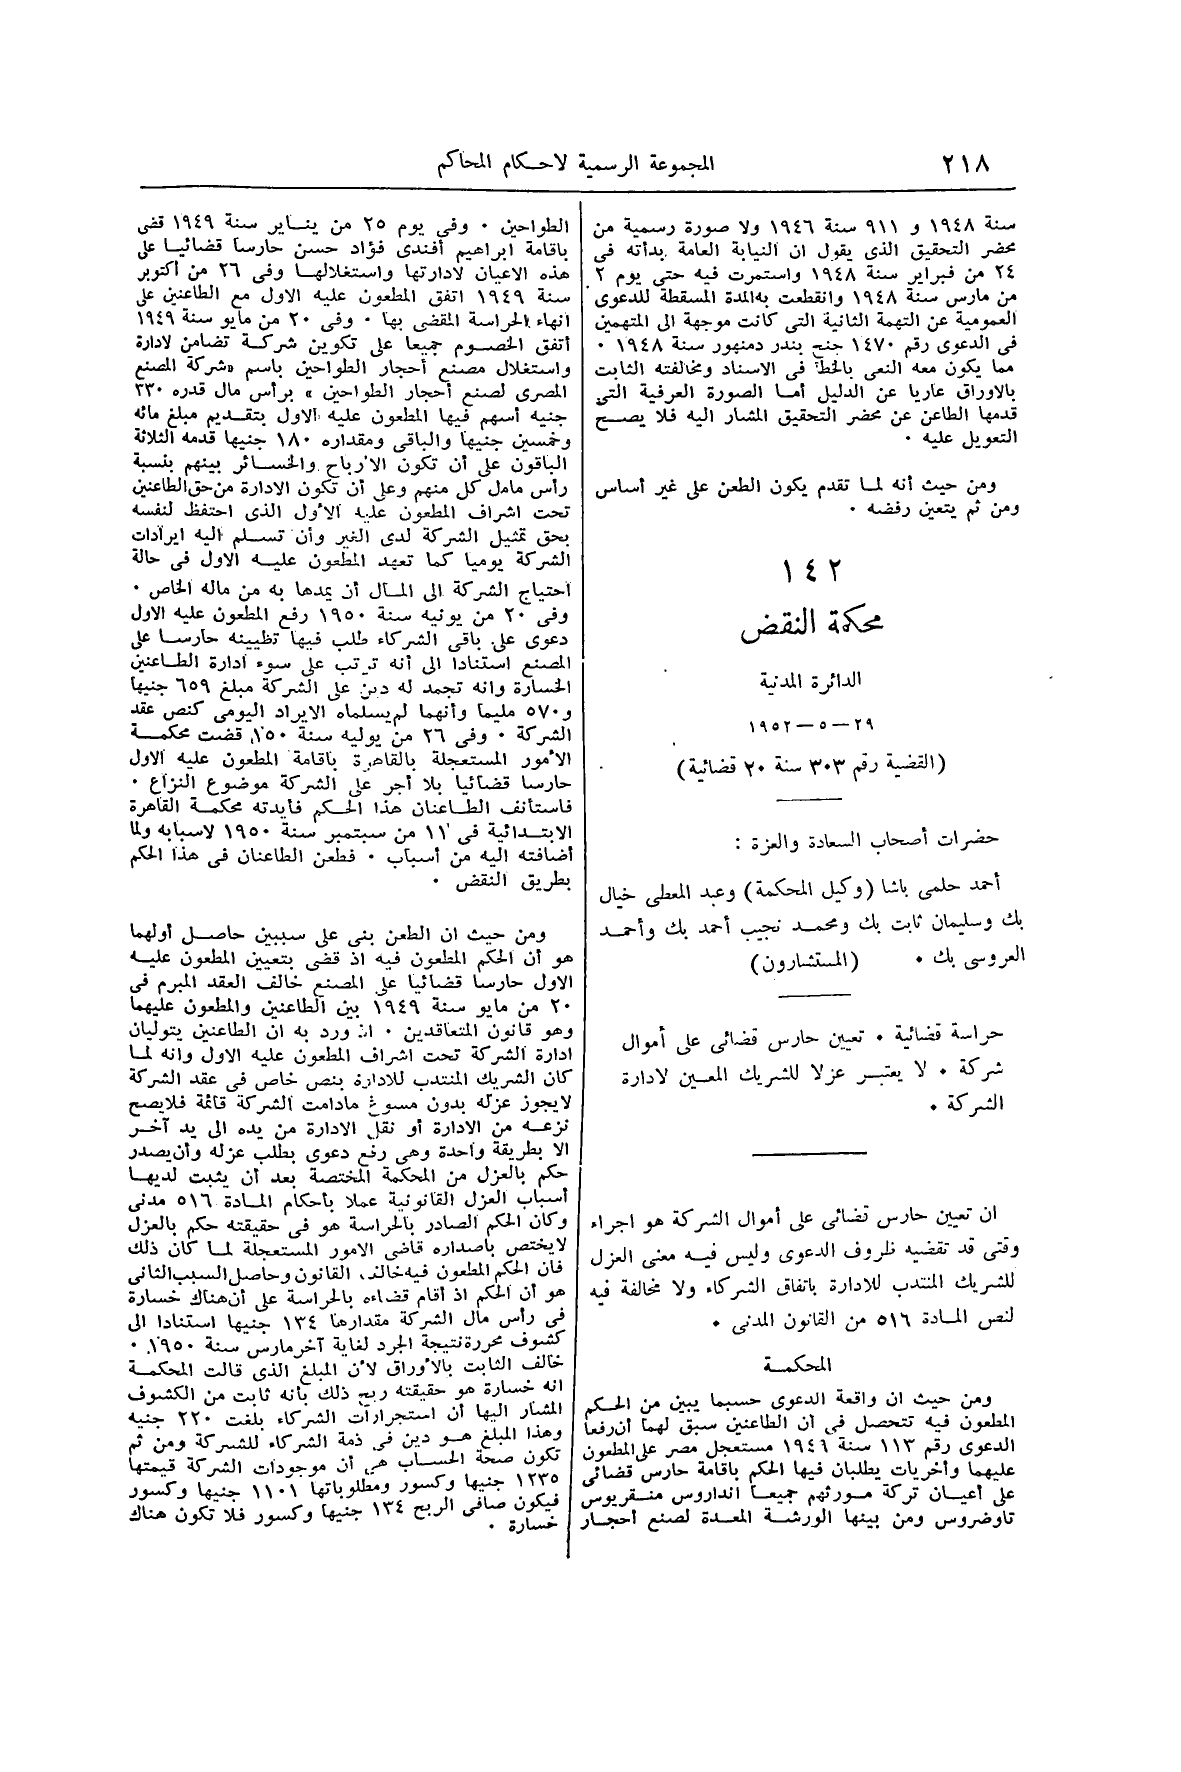 ٢١٨
المجموعة الرسمية لاحكام المحاكم
سنة ١٩٤٨ و ٩١١ سنة ١٩٤٦ ولا صورة رسمية من
محضر التحقيق الذى يقول ان النيابة العامة بدأته فى
٢٤ من فبراير سنة ١٩٤٨ واستمرت فيه حتى يوم ٢
من مارس سنة ١٩٤٨ وانقطعت به المدة المسقطة للدعوى
العمومية عن التهمة الثانية التى كانت موجهة الى المتهمين
فى الدعوى رقم ١٤٧٠ جنح بندر دمنهور سنة ١٩٤٨ ٠
مما يكون معه النعى بالخطأ فى الاسناد ومخالفته الثابت
بالاوراق عاريا عن الدليل أما الصورة العرفية التى
قدمها الطاعن عن محضر التحقيق المشار اليه فلا يصح
التعويل عليه ٠
ومن حيث أنه لما تقدم يكون الطعن على غير أساس
ومن ثم يتعين رفضه ٠
١٤٢
محكمة النقض
الدائرة المدنية
٢٩—٥—١٩٥٢
(القضية رقم ٣٠٣ سنة ٢٠ قضائية)
حضرات أصحاب السعادة والعزة :
أحمد حلمى باشا (وكيل المحكمة) وعبد المعطى خيال
بك وسليمان ثابت بك ومحمد نجيب أحمد بك وأحمد
العروسى بك ٠ (المستشارون)
حراسة قضائية ٠ تعيين حارس قضائى على أموال
شركة ٠ لا يعتبر عزلا للشريك المعين لادارة
الشركة ٠
ان تعيين حارس قضائى على أموال الشركة هو اجراء
وقتى قد تقضيه ظروف الدعوى وليس فيه معنى العزل
للشريك المنتدب للادارة باتفاق الشركاء ولا مخالفة فيه
لنص المادة ٥١٦ من القانون المدنى ٠
المحكمة
ومن حيث ان واقعة الدعوى حسبما يبين من الحكم
المطعون فيه تتحصل فى أن الطاعنين سبق لهما أن رفعا
الدعوى رقم ١١٣ سنة ١٩٤٦ مستعجل مصر على المطعون
عليهما وأخريات يطلبان فيها الحكم باقامة حارس قضائى
على أعيان تركة مورثهم جميعا انداروس منقريوس
تاوضروس ومن بينها الورشة المعدة لصنع أحجار
الطواحين ٠ وفى يوم ٢٥ من يناير سنة ١٩٤٩ قضى
باقامة ابراهيم أفندى فؤاد حسن حارسا قضائيا على
هذه الاعيان لادارتها واستغلالها وفى ٢٦ من أكتوبر
سنة ١٩٤٩ اتفق المطعون عليه الاول مع الطاعنين على
انهاء الحراسة المقضى بها ٠ وفى ٢٠ من مايو سنة ١٩٤٩
أتفق الخصوم جميعا على تكوين شركة تضامن لادارة
واستغلال مصنع أحجار الطواحين باسم «شركة المصنع
المصرى لصنع أحجار الطواحين » برأس مال قدره ٣٣٠
جنيه أسهم فيها المطعون عليه الاول بتقديم مبلغ مائه
وخمسين جنيها والباقى ومقداره ١٨٠ جنيها قدمه الثلاثة
الباقون على أن تكون الارباح والخسائر بينهم بنسبة
رأس مامل كل منهم وعلى أن تكون الادارة من حق الطاعنين
تحت اشراف المطعون عليه الأول الذى احتفظ لنفسه
بحق تمثيل الشركة لدى الغير وأن تسلم اليه ايرادات
الشركة يوميا كما تعهد المطعون عليه الاول فى حالة
احتياج الشركة الى المال أن يمدها به من ماله الخاص ٠
وفى ٢٠ من يونيه سنة ١٩٥٠ رفع المطعون عليه الاول
دعوى على باقى الشركاء طلب فيها تظيينه حارسا على
المصنع استنادا الى أنه ترتب على سوء ادارة الطاعنين
الخسارة وانه تجمد له دين على الشركة مبلغ ٦٥٩ جنيها
و٥٧٠ مليما وأنهما لم يسلماه الايراد اليومى كنص عقد
الشركة ٠ وفى ٢٦ من يوليه سنة ١٩٥٠ قضت محكمة
الأمور المستعجلة بالقاهرة باقامة المطعون عليه الاول
حارسا قضائيا بلا أجر على الشركة موضوع النزاع ٠
فاستأنف الطاعنان هذا الحكم فأيدته محكمة القاهرة
الابتدائية فى ١١ من سبتمبر سنة ١٩٥٠ لاسبابه ولما
أضافته اليه من أسباب ٠ فطعن الطاعنان فى هذا الحكم
بطريق النقض ٠
ومن حيث ان الطعن بنى على سببين حاصل أولهما
هو أن الحكم المطعون فيه اذ قضى بتعيين المطعون عليه
الاول حارسا قضائيا على المصنع خالف العقد المبرم فى
٢٠ من مايو سنة ١٩٤٩ بين الطاعنين والمطعون عليهما
وهو قانون المتعاقدين ٠ اذ ورد به ان الطاعنين يتوليان
ادارة الشركة تحت اشراف المطعون عليه الاول وانه لما
كان الشريك المنتدب للادارة بنص خاص فى عقد الشركة
لا يجوز عزله بدون مسوغ مادامت الشركة قائمة فلا يصح
نزعه من الادارة أو نقل الادارة من يده الى يد آخر
الا بطريقة واحدة وهى رفع دعوى بطلب عزله وأن يصدر
حكم بالعزل من المحكمة المختصة بعد أن يثبت لديها
أسباب العزل القانونية عملا بأحكام المادة ٥١٦ مدنى
وكان الحكم الصادر بالحراسة هو فى حقيقته حكم بالعزل
لا يختص باصداره قاضى الامور المستعجلة لما كان ذلك
فان الحكم المطعون فيه خالف القانون وحاصل السبب الثانى
هو أن الحكم اذ أقام قضاءه بالحراسة على أن هناك خسارة
فى رأس مال الشركة مقدارها ١٣٤ جنيها استنادا الى
كشوف محررة نتيجة الجرد لغاية آخر مارس سنة ١٩٥٠ ٠
خالف الثابت بالأوراق لأن المبلغ الذى قالت المحكمة
انه خسارة هو حقيقته ربح ذلك بانه ثابت من الكشوف
المشار اليها أن استجرارات الشركاء بلغت ٢٢٠ جنيه
وهذا المبلغ هو دين فى ذمة الشركاء للشركة ومن ثم
تكون صحة الحساب هى أن موجودات الشركة قيمتها
١٢٣٥ جنيها وكسور ومطلوباتها ١١٠١ جنيها وكسور
فيكون صافى الربح ١٣٤ جنيها وكسور فلا تكون هناك
خسارة ٠